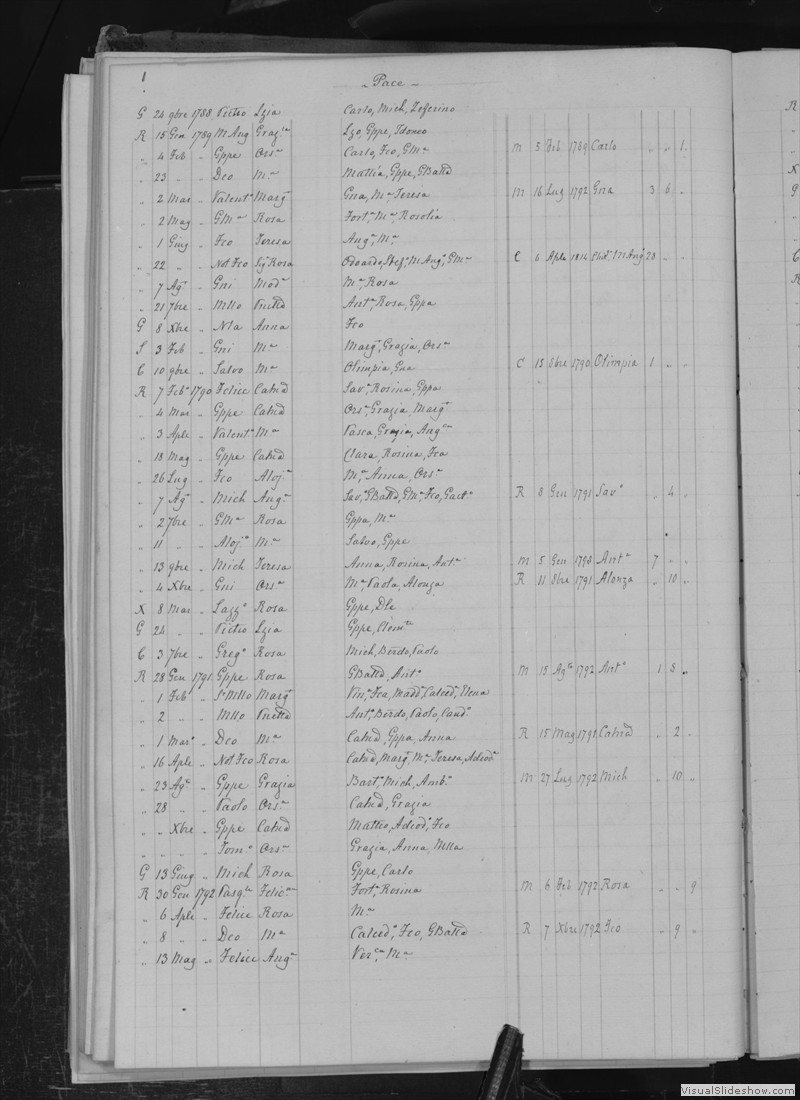 1
- Pace -
G 24 9bre 1788 Pietro Lzia Carlo, Mich, Zefirino
R 15 Gen 1789 M Ang Graz.la Lzo, Gppe, Idonco
" 4 Feb " Gppe Ors.a Carlo, Fco, GM.a M 5 Feb 1789 Carlo " " 1.
" 23 " " Dco M.a Mattia, Gppe, GBatta
" 2 Mar " Valent.o Marg.a Gna, M.a Teresa M 16 Lug 1792 Gna 3 6 "
" 2 Mag " GM.a Rosa Fort.a M.a Rosolia
" 1 Giug " Fco Teresa Ang.a M.a
" 22 " " Not Fco Rosa Odoardo, M Ang.o GM.a C 6 Aple 1814 M Ang 28 " "
" 7 Ag.o " Gni Mod.a M.a Rosa
" 21 7bre " Mllo Ant.a Rosa, Gppa
G 8 Xbre " Nla Anna Fco
S 3 Feb " Gni M.a Marg.a Grazia, Ors.a
C 10 9bre " Salvo M.a Olimpia, Gna C 15 8bre 1790 Olimpia 1 " "
R 7 Feb.o 1790 Felice Catnd Sav.a Rosina, Gppa
" 4 Mar " Gppe Catnd Ors.a Grazia, Marg.a
" 3 Aple " Valent.o M.a Vasca, Grazia, Ang.ca
" 18 Mag " Gppe Catnd Clara, Rosina, Fca
" 26 Lug " Fco Aloj.a M.a Anna, Ors.a
" 7 Ag.o " Mich Ang.a Sav.o GBatta, GM.a Fco, Gaet.o R 8 Gen 1791 Sav.o " 4 "
" 2 7bre " GM.a Rosa Gppa, M.a
" 11 " " Aloj.o M.a Salvo, Gppe
" 13 9bre " Mich Teresa Anna, Rosina, Ant.a M 5 Gen 1798 Ant.a 7 " "
" 4 Xbre " Gni Ors.a M.a Paola, Alonza R 11 8bre 1791 Alonza " 10 "
X 8 Mar " Lazz.o Rosa Gppe, Dle
G 24 " " Pietro Lzia Gppe, Clem.te
C 3 7bre " Greg.o Rosa Mich, Berdo, Paolo
R 28 Gen 1791 Gppe Rosa GBatta, Ant.o M 15 Ag.to 1792 Ant.o 1 8 "
" 1 Feb " Mllo Marg.a Vin.a Fca, Madd.a Calced.a Elena
" 2 " " Mllo Ant.o Berdo, Paolo, Cand.o
" 1 Mar.o " Dco M.a Catnd, Gppa, Anna R 15 Mag 1791 Catnd " 2 "
" 16 Aple " Not Fco Rosa Catnd, Marg.a M.a Teresa, Adiod.a
" 23 Ag.o " Gppe Grazia Bart.o Mich, Amb.o M 27 Lug 1792 Mich " 10 "
" 28 " " Paolo Ors.a Catnd, Grazia
" " Xbre " Gppe Catnd Matteo, Adiod.o Fco
" " " " Tom.o Ors.a Grazia, Anna, Mlla
G 13 Giug " Mich Rosa Gppe, Carlo
R 30 Gen 1792 Pasq.le Felic.na Fort.a Rosina M 6 Feb 1792 Rosa " " 9
" 6 Aple " Felice Rosa M.a
" 8 " " Dco M.a Calced.o Fco, GBatta R 7 Xbre 1792 Fco " 9 "
" 13 Mag " Felice Ang.a M.a
VisualSlideshow.com